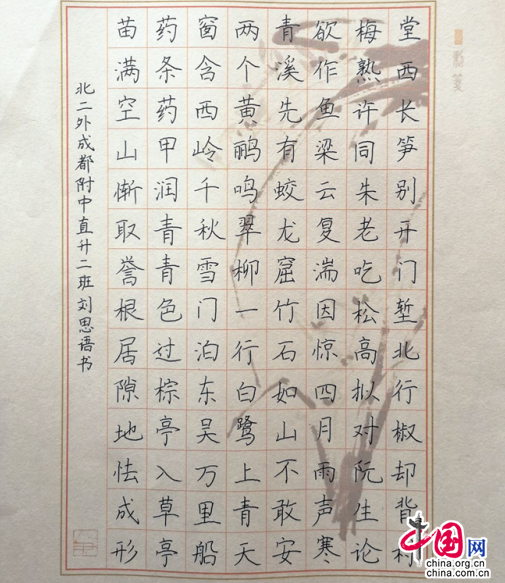 堂西长笋别开门堑北行椒却背村
梅熟许同朱老吃松高拟对阮生论
欲作鱼梁云复湍因惊四月雨声寒
青溪先有蛟龙窟竹石如山不敢安
两个黄鹂鸣翠柳一行白鹭上青天
窗含西岭千秋雪门泊东吴万里船
药条药甲润青青色过棕亭入草亭
苗满空山惭取誉根居隙地怯成形
北二外成都附中直升二班刘思语书
中国网
china.org.cn
china.com.cn